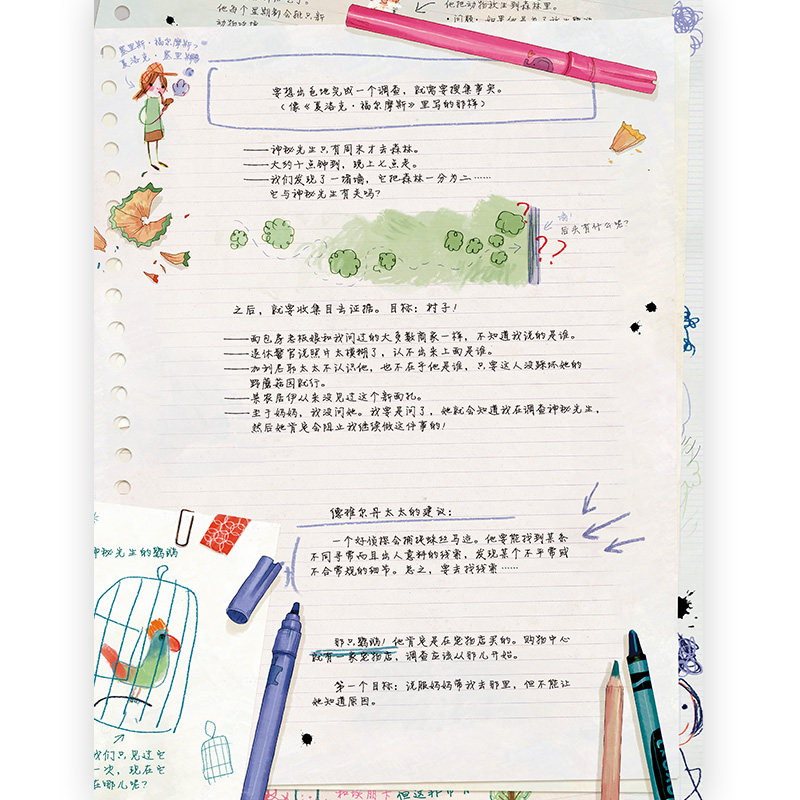 他每个星期都会把只新
动物玩
他把动物放生到森林里。
慕里斯·福尔摩斯？
夏洛克·慕里斯
要想出色地完成一个调查，就需要搜集事实。
（像《夏洛克·福尔摩斯》里写的那样）
——神秘先生只有周末才去森林。
——大约十点钟到，晚上七点走。
——我们发现了一堵墙，它把森林一分为二……
它与神秘先生有关吗？
墙！
后头有什么呢？
之后，就要收集目击证据。目标：村子！
——面包房老板娘和我问过的大多数商家一样，不知道我说的是谁。
——退休警官说照片太模糊了，认不出来上面是谁。
——加利尼耶太太不认识他，也不在乎他是谁，只要这人没踩坏她的
野蘑菇园就行。
——果农居伊从来没见过这个新面孔。
——至于妈妈，我没问她。我要是问了，她就会知道我在调查神秘先生，
然后她肯定会阻止我继续做这件事的！
德雅尔丹太太的建议：
一个好侦探会捕捉蛛丝马迹。他要能找到某条
不同寻常而且出人意料的线索，发现某个不平常或
不合常规的细节。总之，要去找线索……
神秘先生的鹦鹉
那只鹦鹉！他肯定是在宠物店买的。购物中心
就有一家宠物店，调查应该从那儿开始。
第一个目标：说服妈妈带我去那里，但不能让
她知道原因。
我们只见过它
一次，现在它
在哪儿呢？